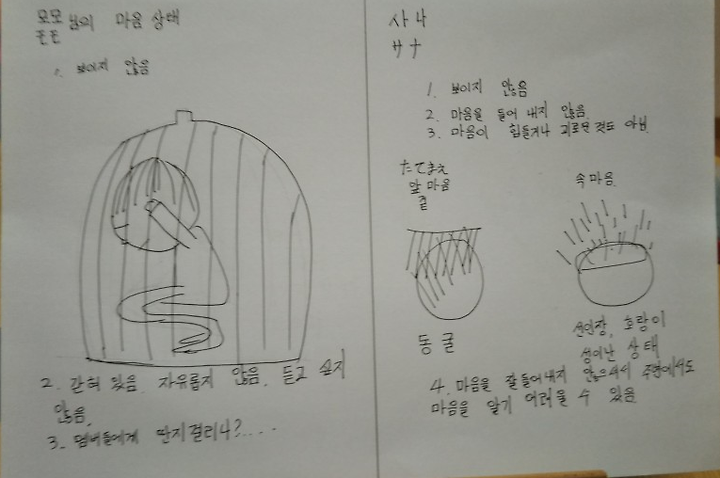 모모 님의 마음 상태
モモ
1. 보이지 않음
2. 갇혀 있음. 자유롭지 않음. 듣고 싶지
않음.
3. 멤버들에게 딴지걸리나?....
사나
サナ
1. 보이지 않음
2. 마음을 들어 내지 않음.
3. 마음이 힘들거나 괴로운것도 아님.
たてまえ
앞마음
겉
속마음
동굴
선인장, 호랑이
성이난 상태
4. 마음을 잘 들어내지 않으셔서 주변에서도
마음을 알기 어려울 수 있음